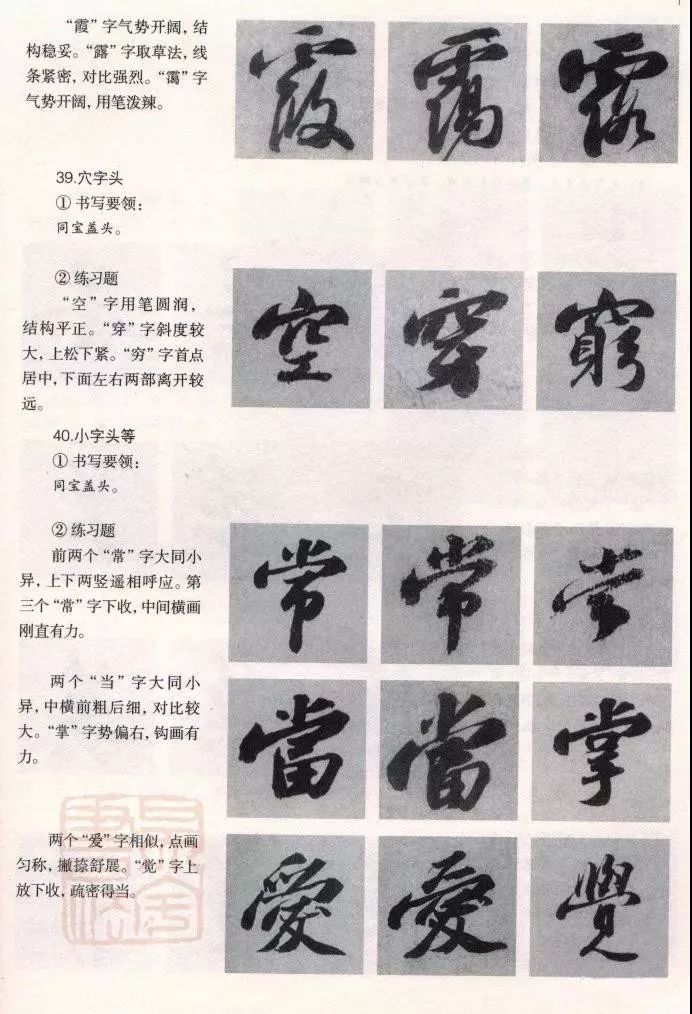 “霞”字气势开阔,结
构稳妥。“露”字取草法,线
条紧密,对比强烈。“霭”字
气势开阔,用笔泼辣。
霞 靄 露
39.穴字头
①书写要领:
同宝盖头。
②练习题
“空”字用笔圆润,
结构平正。“穿”字斜度较
大,上松下紧。“穷”字首点
居中,下面左右两部离开较
远。
空 穿 窮
40.小字头等
①书写要领:
同宝盖头。
②练习题
前两个“常”字大同小
异,上下两竖遥相呼应。第
三个“常”字下收,中间横画
刚直有力。
常 常 常
两个“当”字大同小
异,中横前粗后细,对比较
大。“掌”字势偏右,钩画有
力。
當 當 掌
两个“爱”字相似,点画
匀称,撇捺舒展。“觉”字上
放下收,疏密得当。
愛 愛 覺